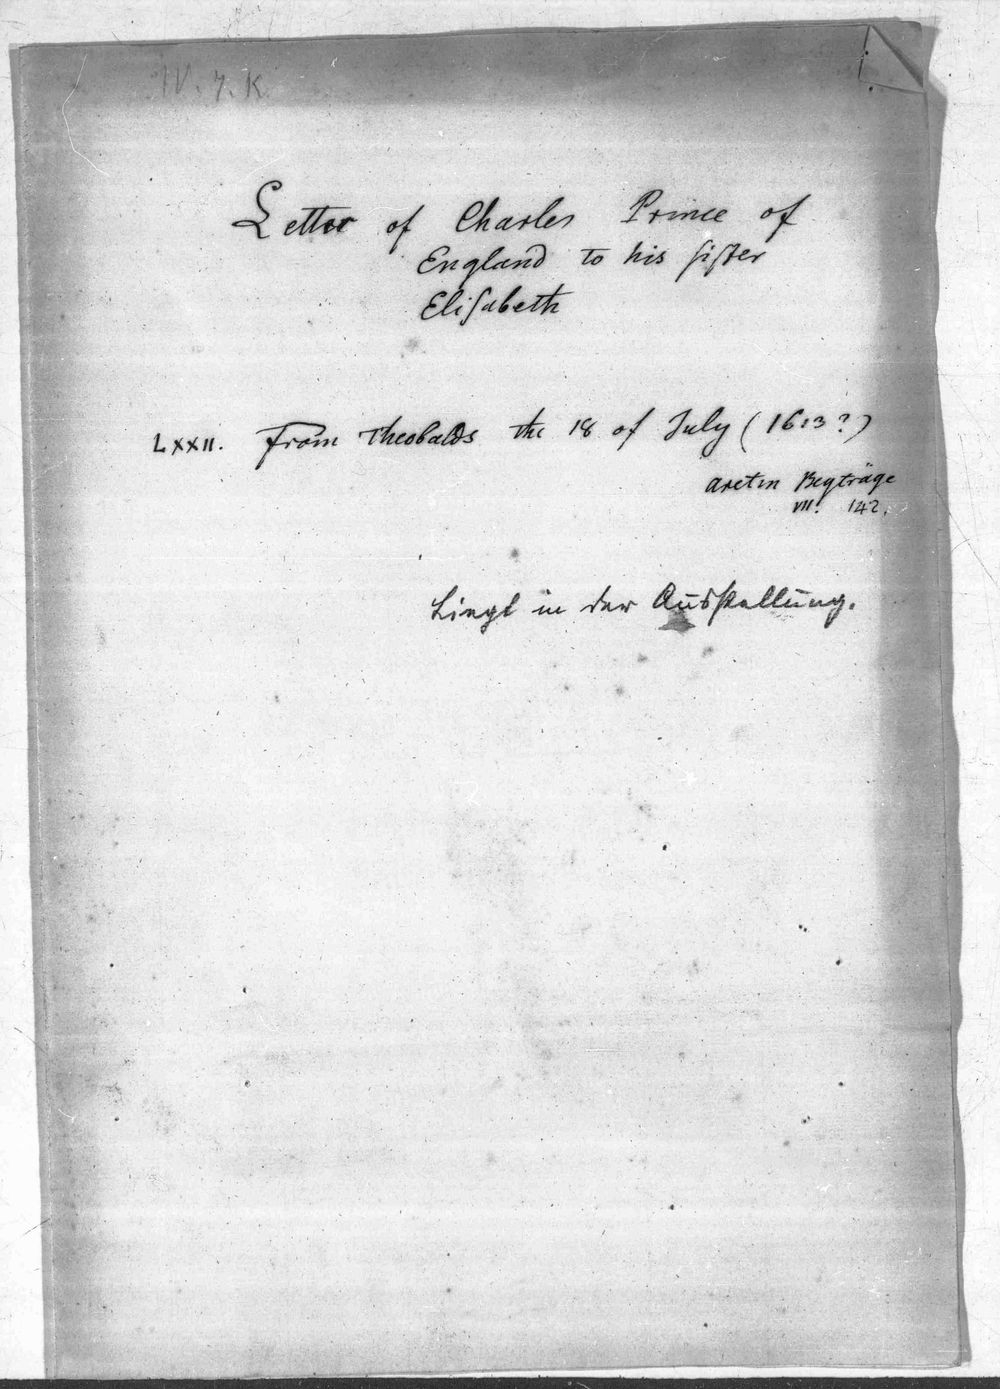 IV. 7. K.
Letter of Charles Prince of
England to his sister
Elisabeth
LXXII. From Theobalds the 18 of July (1613?)
Aretin Beyträge
VII. 142.
Liegt in der Ausstellung.